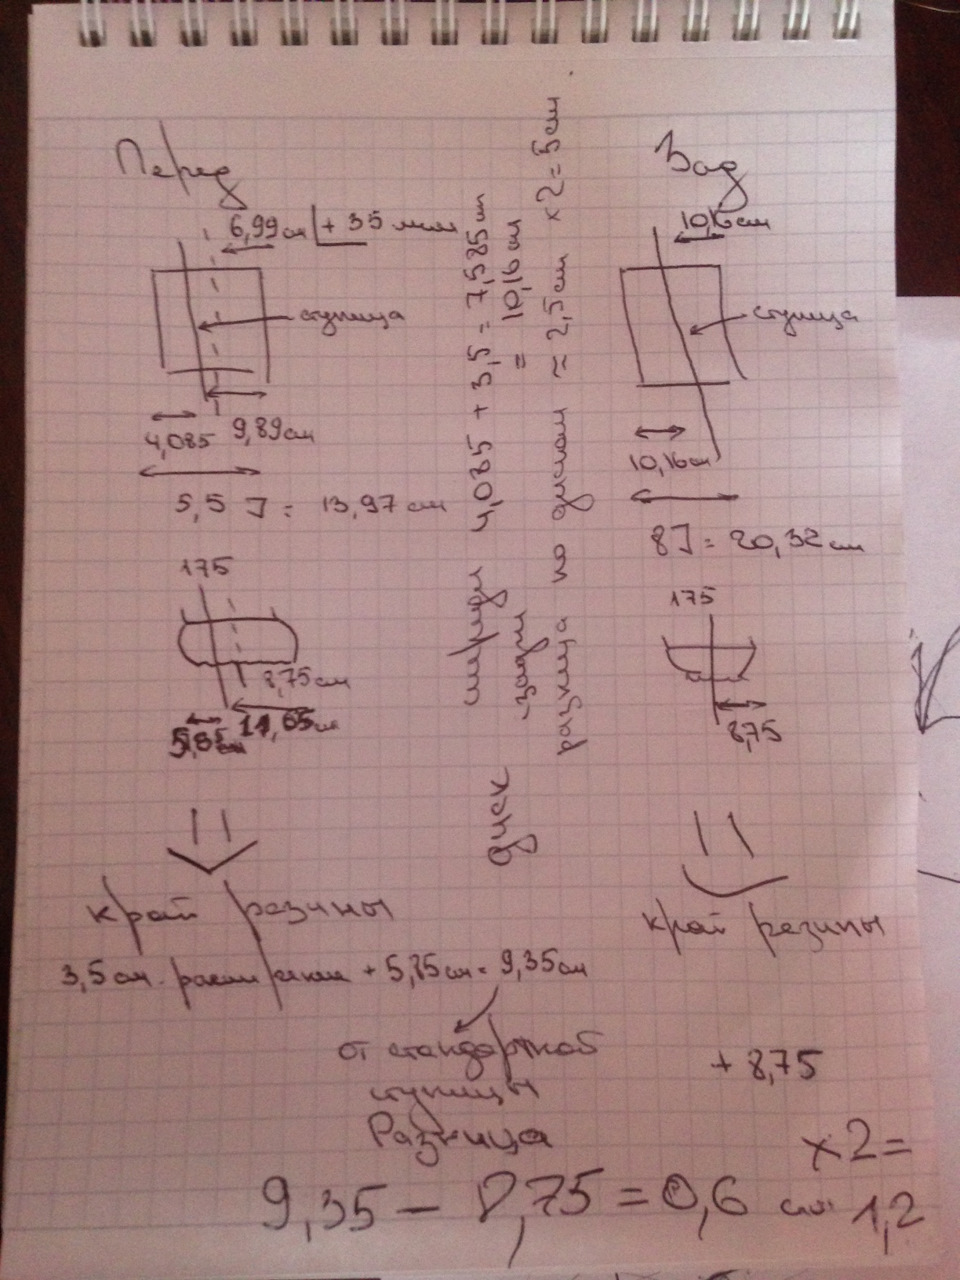 Перед
6,99 см + 35 мм
ступица
4,085 9,89 см
5,5 J = 13,97 см
175
8,75 см
5,85 см 11,65 см
край резины
3,5 см расширение + 5,85 см = 9,35 см
от стандартной
ступицы
Разница
9,35 - 8,75 = 0,6 см
x2 =
1,2
диск спереди 4,085 + 3,5 = 7,585 см
сзади = 10,16 см
разница по дискам ≈ 2,5 см x2 = 5 см
Зад
10,16 см
ступица
10,16 см
8J = 20,32 см
175
8,75
край резины
+ 8,75